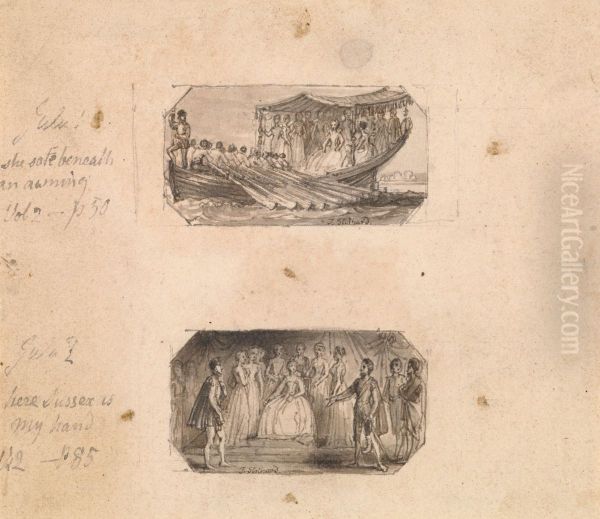 she sate beneath
an awning
Vol 2 — p 50
T. Stothard.
here Sussex is
my hand
— p 85
T. Stothard.
NiceArtGallery.com